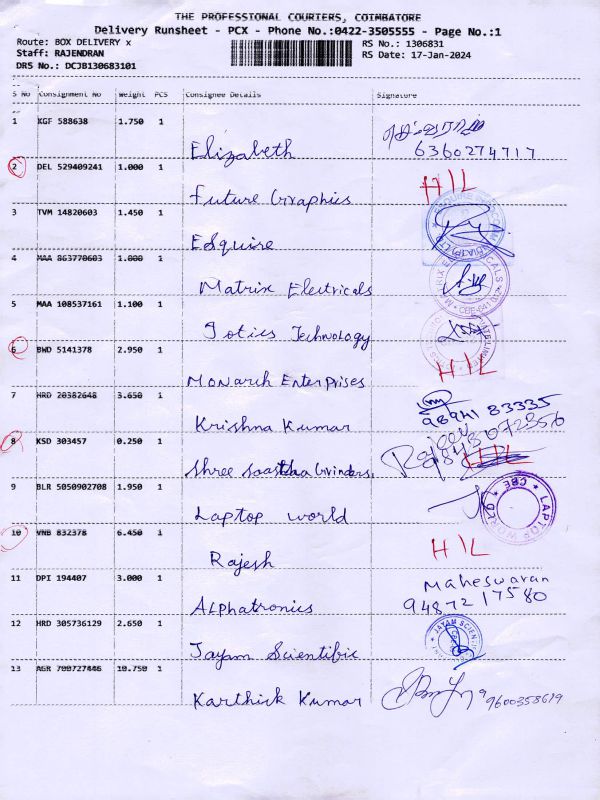 THE PROFESSIONAL COURIERS, COIMBATORE
Delivery Runsheet - PCX - Phone No.:0422-3505555 - Page No.:1
Route: BOX DELIVERY x
RS No.: 1306831
Staff: RAJENDRAN
RS Date: 17-Jan-2024
DRS No.: DCJB130683101
S No Consignment No Weight PCS Consignee Details Signature
1 KGF 588638 1.750 1
Elizabeth 6360274717
2 DEL 529409241 1.000 1
Future Graphics HIL
3 TVM 14820603 1.450 1
Esquire
4 MAA 863770603 1.000 1
Matrix Electricals
5 MAA 108537161 1.100 1
Jotics Technology
6 BWD 5141378 2.950 1
Monarch Enterprises HIL
7 HRD 20382648 3.650 1
Krishna Kumar 98941 83335
8 KSD 303457 0.250 1
Shree Saastha Grinders
9843072356
9 BLR 5050902708 1.950 1
Laptop world
LAPTOP WORLD CBE
10 VNB 832378 6.450 1
Rajesh HIL
11 DPI 194407 3.000 1
Maheswaran
Alphatronics 94872 17580
12 HRD 305736129 2.650 1
Jayam Scientific
JAYAM SCIENTIFIC
13 AGR 700727446 10.750 1
Karthick Kumar 9600358619